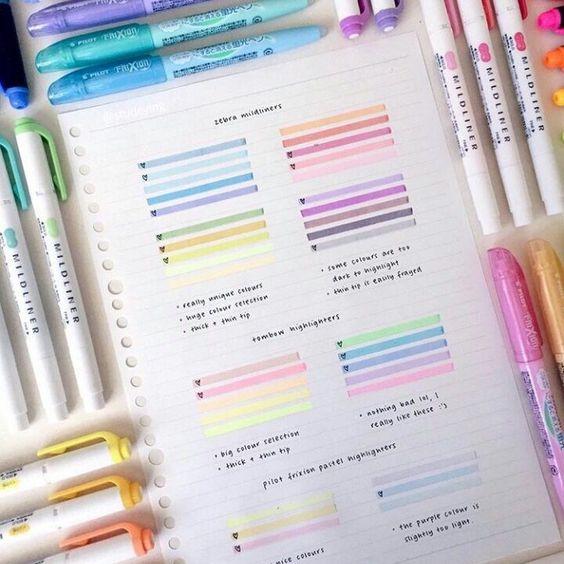 PILOT FriXion
PILOT FriXion
PILOT FriXion
@studeying
zebra mildliners
• really unique colours
• huge colour selection
• thick + thin tip
• some colours are too
dark to highlight
• thin tip is easily frayed
tombow highlighters
• big colour selection
• thick + thin tip
• nothing bad lol, I
really like these :')
pilot frixion pastel highlighters
nice colours
• the purple colour is
slightly too light.
MILDLINER
MILDLINER
MILDLINER
MILDLINER
MILDLINER
FriXion
FriXion